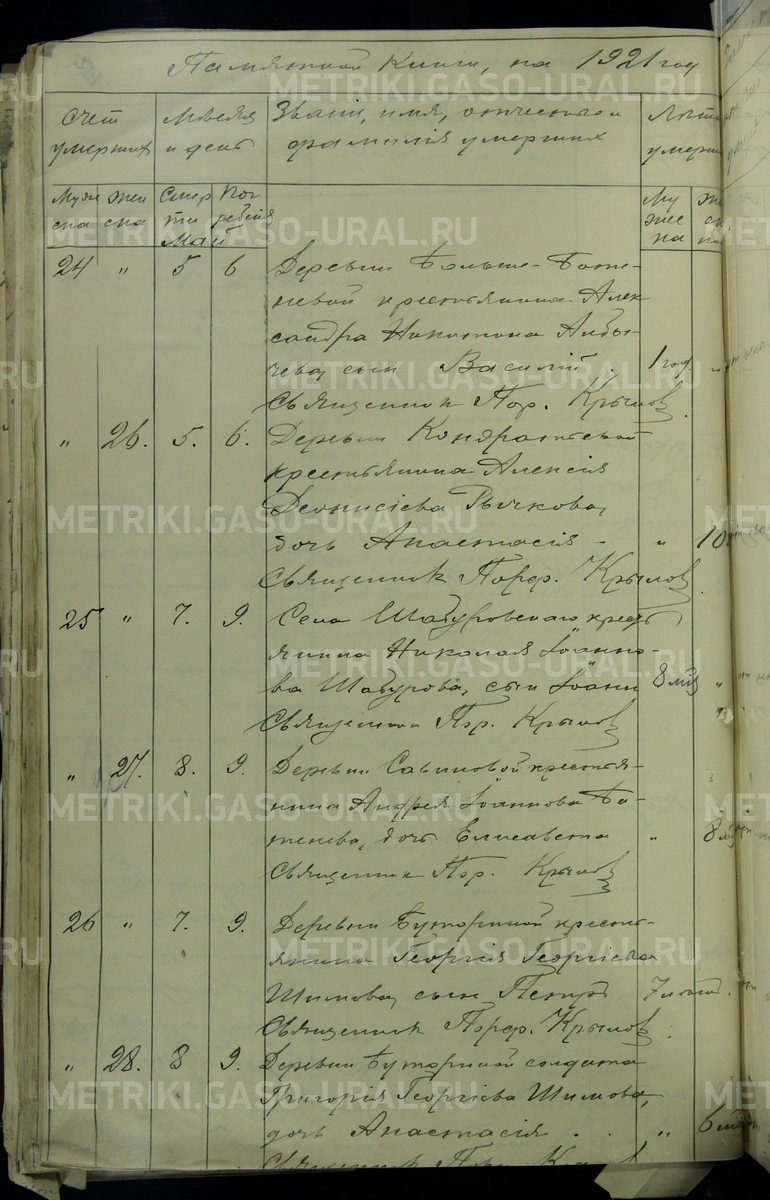 Памятной Книги, на 1921 год
Счет умерших
Месяц и день
Званіе, имя, отчество и фамилія умерших
Лета умерш
Муж ска
Жен ска
Смер ти
Пог ребенія
Май
Му же ска
24 " 5 6 Деревни Больше-Баже-
невой крестьянина Алек
сандра Никитина
чева, сын Василій. 1 год. "
Священник Пор. Крылов
" 26. 5. 6. Деревни Кондратьевой
крестьянина Алексія
Деонисіева Рычкова,
дочь Анастасія - " 10
Священник Порф. Крылов
25 " 7. 9. Села Шабуровскаго крест
янина Николая Іоанно-
ва Шабурова, сын Іоанн 8 "
Священник Пор. Крылов
" 27. 8. 9. Деревни Савиновой крестья-
нина Андрея Іоаннова Ба-
женева, дочь Елисавета " 8
Священник Пор. Крылов
26 " 7. 9. Деревни Буториной кресть-
янина Георгія Георгіева
Шимова, сын Петр 7
Священник Порф. Крылов
" 28. 8 9. Деревни Буториной солдата
Григорія Георгіева Шимова,
дочь Анастасія . . " 6
Священник Крылов
METRIKI.GASO-URAL.RU